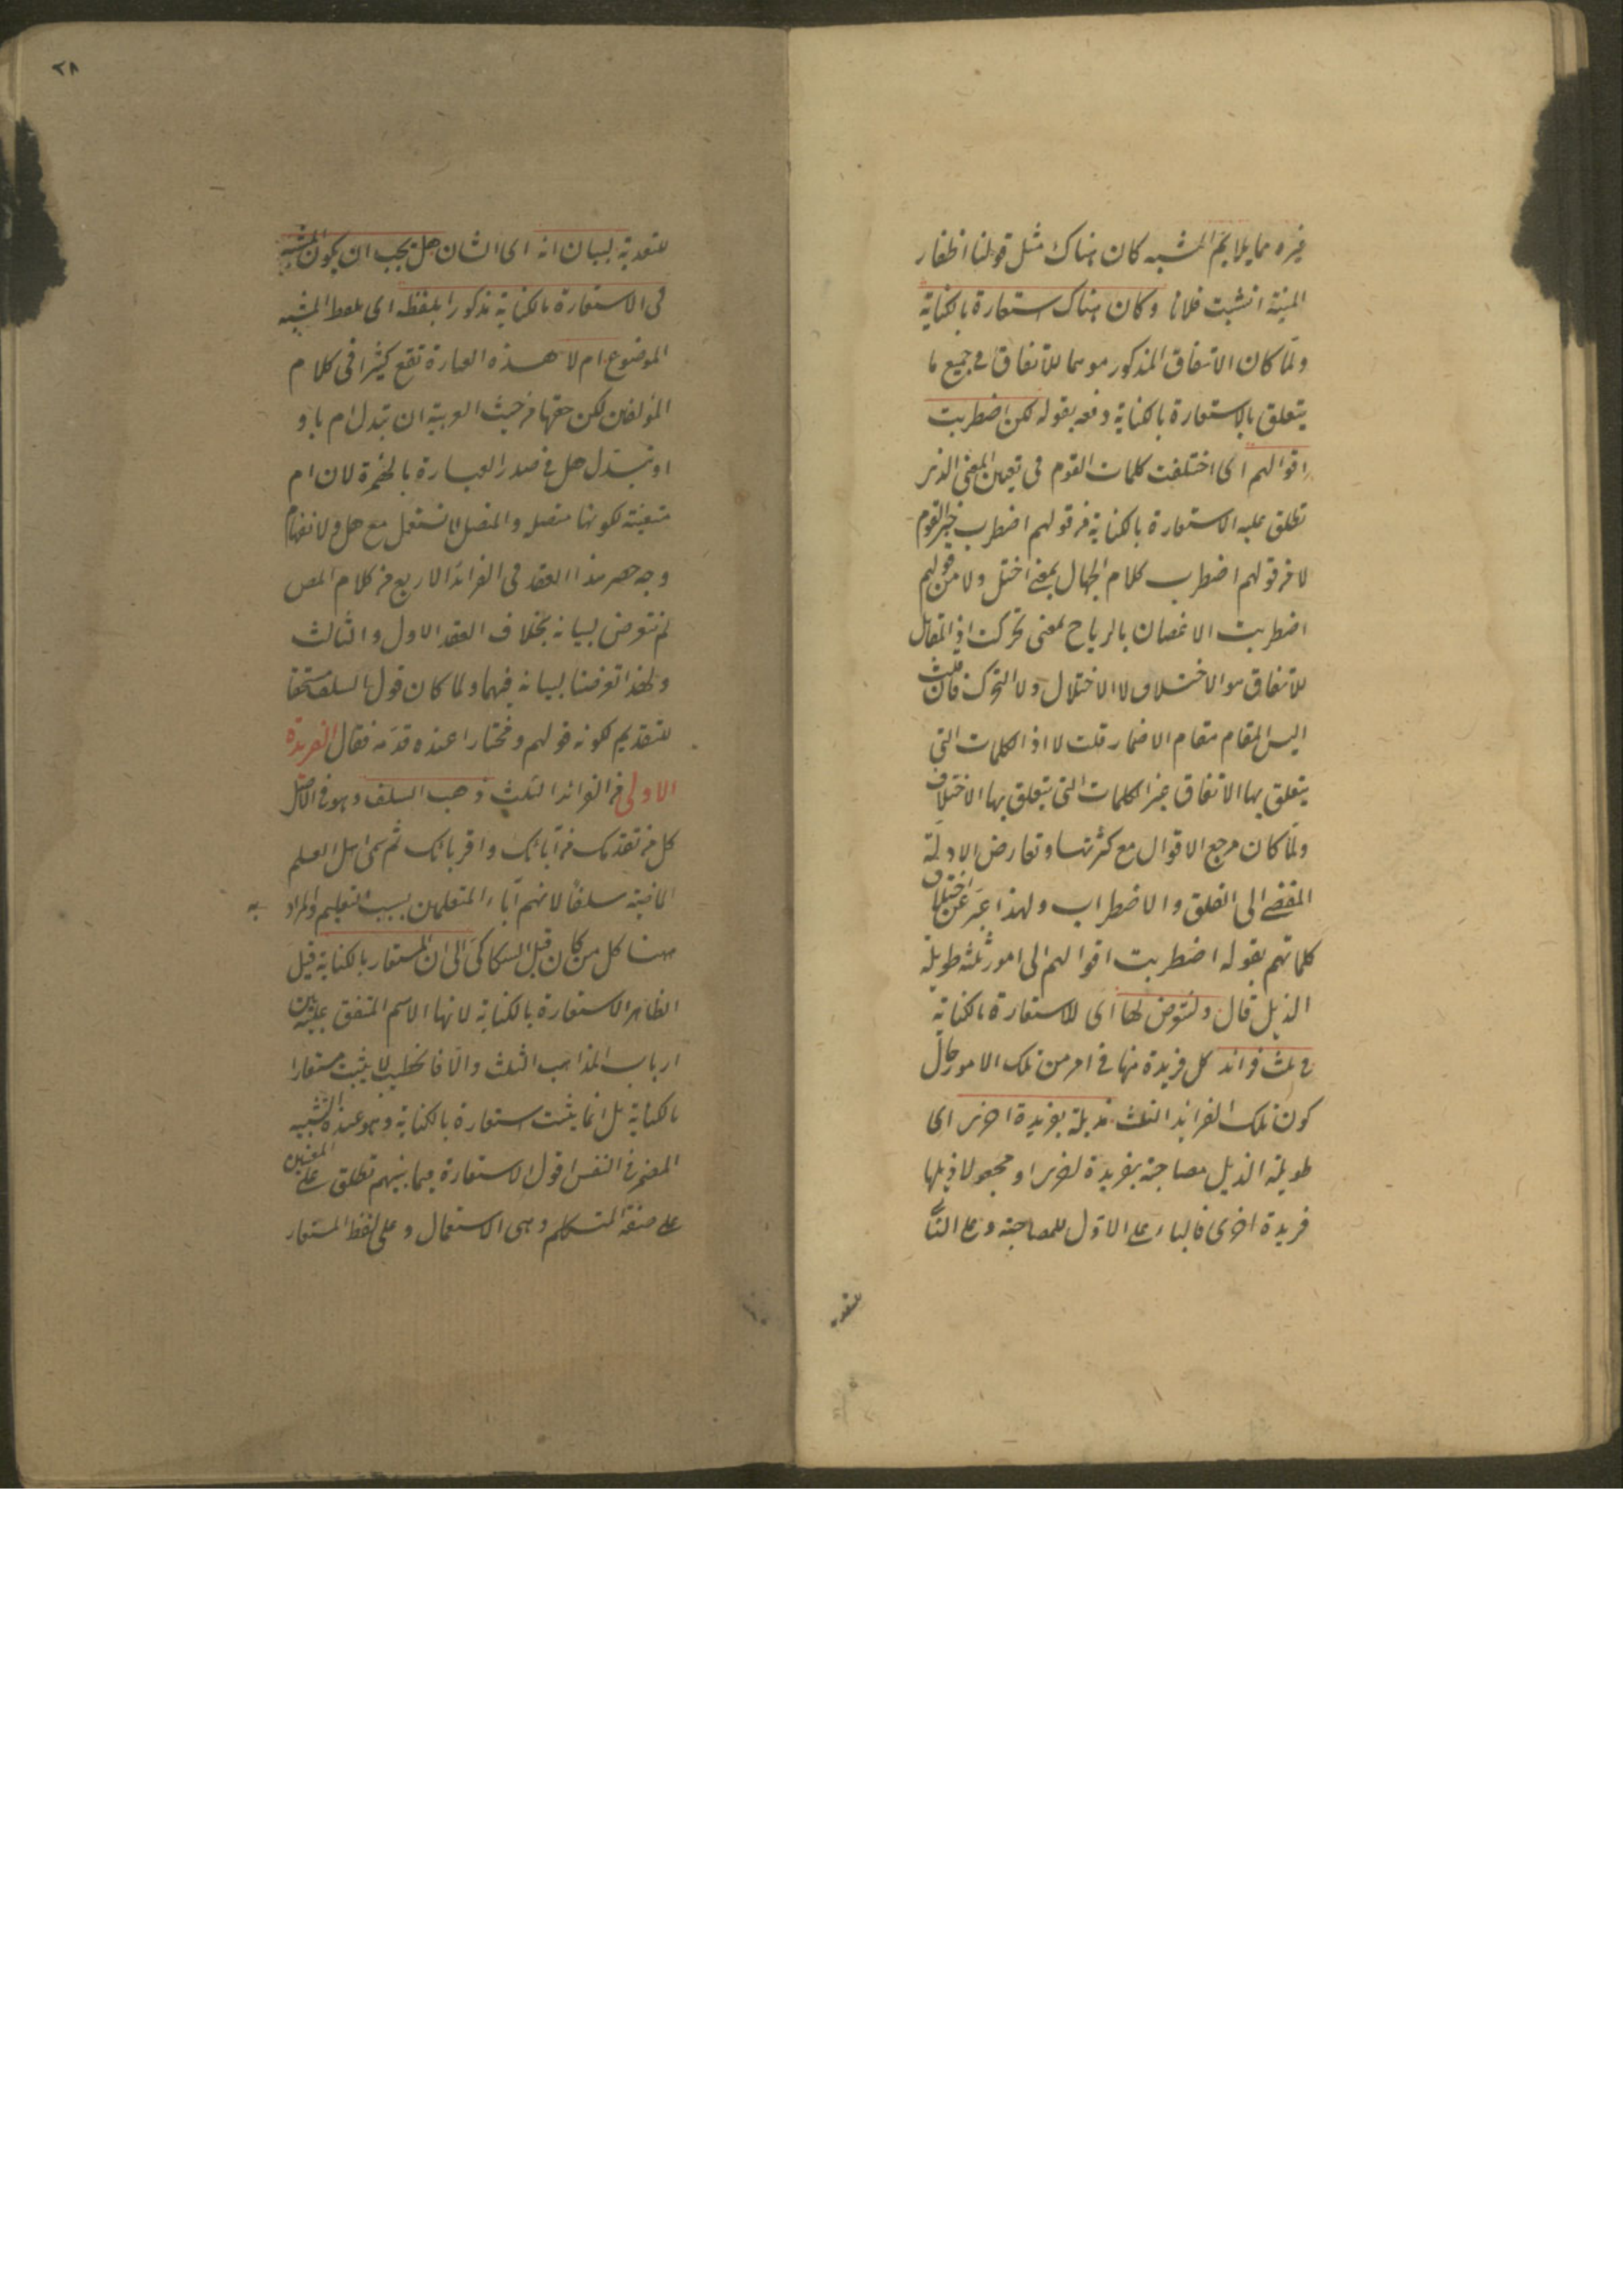 غيره مما يلايم المشبه كان هناك مثل قولنا اظفار
المنية انشبت فلانا وكان هناك استعارة بالكناية
ولما كان الاتفاق المذكور موهما للاتفاق في جميع ما
يتعلق بالاستعارة بالكناية دفعه بقوله لكن اضطربت
اقوالهم اى اختلفت كلمات القوم فى تعيين المعنى الذى
تطلق عليه الاستعارة بالكناية من قولهم اضطرب خبر القوم
لا من قولهم اضطرب كلام الجهال بمعنى اختل ولا من قولهم
اضطربت الاغصان بالرياح بمعنى تحركت اذ المقابل
للاتفاق هو الاختلاف لا الاختلال ولا التحرك فان قلت
اليس المقام مقام الاضمار قلت لا اذ الكلمات التى
يتعلق بها الاتفاق غير الكلمات التى يتعلق بها الاختلاف
ولما كان مرجع الاقوال مع كثرتها وتعارض الادلة
المفضى الى القلق والاضطراب ولهذا عبر عن اختلاف
كلماتهم بقوله اضطربت اقوالهم الى امور ثلثة طويلة
الذيل قال ولنتعرض لها اى للاستعارة بالكناية
فى ثلث فرائد كل فريدة منها فى امر من تلك الامور حال
كون تلك الفرايد الثلث مذيلة بفريدة اخرى اى
طويلة الذيل مصاحبة بفريدة اخرى او مجعولا ذيلها
فريدة اخرى فالباء على الاول للمصاحبة وعلى الثا
للتعدية
٢٨
للتعدية لبيان انه اى الشان هل يجب ان يكون المشبه
فى الاستعارة بالكناية مذكورا بلفظه اى بلفظ المشبه
الموضوع ام لا هذه العبارة تقع كثيرا فى كلام
المؤلفين لكن حقها من حيث العربية ان تبدل ام باو
او تبدل هل فى صدر العبارة بالهمزة لان ام
متعينة لكونها متصلة والمتصل لا تستعمل مع هل
وجه حصر هذا العقد فى الفرائد الاربع من كلام المص
لم نتعرض لبيانه بخلاف العقد الاول والثالث
ولهذا تعرضنا لبيانه فيهما ولما كان قول السلف مستحقا
للتقديم لكونه قولهم ومختارا عنده قدمه فقال الفريدة
الاولى من الفوائد الثلث ذهب السلف وهو فى الاصل
كل من تقدمك من آبائك واقربائك ثم سمى اهل العلم
الماضية سلفا لانهم آباء المتعلمين بسبب التعليم والمراد به
ههنا كل من كان قبل السكاكى الى ان المستعار بالكناية قيل
الظاهر الاستعارة بالكناية لانها الاسم المتفق عليه بين
ارباب المذاهب الثلث والا فالخطيب لا يثبت مستعارا
بالكناية بل انما يثبت استعارة بالكناية وهو عنده التشبيه
المضمر فى النفس اقول الاستعارة فيما بينهم تطلق على المعنيين
على صفة المتكلم وهى الاستعمال وعلى لفظ المستعار